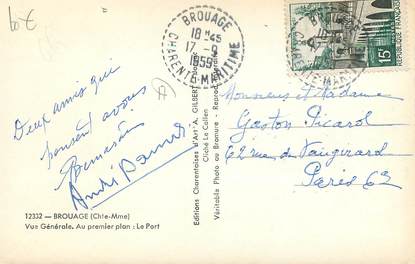 10€
BROUAGE
18H45
17 - 9
1959
CHARENTE-MARITIME
RÉPUBLIQUE FRANÇAISE
15F
Deux amis qui
pensent à vous
Monsieur et Madame
Gaston Picard
62 rue de Vaugirard
Paris 6e
Editions Charentaises d'Art "A. GILBERT"
Cliché Le Collen
Véritable Photo au Bromure - Reprod.
12332 — BROUAGE (Chte-Mme)
Vue Générale. Au premier plan : Le Port